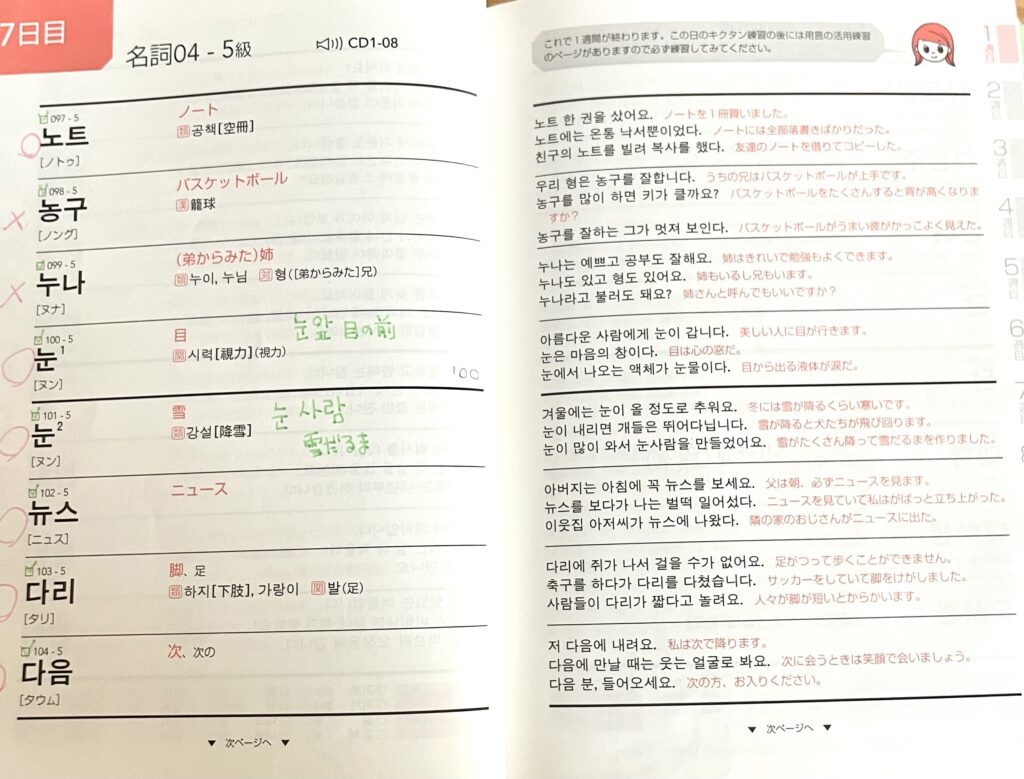 7日目
名詞04 - 5級
CD1-08
097 - 5
노트
[ノトゥ]
ノート
類공책[空冊]
098 - 5
농구
[ノング]
バスケットボール
漢籠球
099 - 5
누나
[ヌナ]
(弟からみた)姉
類누이, 누님 対형([弟からみた]兄)
100 - 5
눈1
[ヌン]
目
関시력[視力](視力)
눈앞 目の前
100
101 - 5
눈2
[ヌン]
雪
類강설[降雪]
눈 사람
雪だるま
102 - 5
뉴스
[ニュス]
ニュース
103 - 5
다리
[タリ]
脚、足
類하지[下肢], 가랑이 関발(足)
104 - 5
다음
[タウム]
次、次の
▼ 次ページへ ▼
これで1週間が終わります。この日のキクタン練習の後には用言の活用練習
のページがありますので必ず練習してみてください。
노트 한 권을 샀어요. ノートを1冊買いました。
노트에는 온통 낙서뿐이었다. ノートには全部落書きばかりだった。
친구의 노트를 빌려 복사를 했다. 友達のノートを借りてコピーした。
우리 형은 농구를 잘합니다. うちの兄はバスケットボールが上手です。
농구를 많이 하면 키가 클까요? バスケットボールをたくさんすると背が高くなりま
すか?
농구를 잘하는 그가 멋져 보인다. バスケットボールがうまい彼がかっこよく見えた。
누나는 예쁘고 공부도 잘해요. 姉はきれいで勉強もよくできます。
누나도 있고 형도 있어요. 姉もいるし兄もいます。
누나라고 불러도 돼요? 姉さんと呼んでもいいですか?
아름다운 사람에게 눈이 갑니다. 美しい人に目が行きます。
눈은 마음의 창이다. 目は心の窓だ。
눈에서 나오는 액체가 눈물이다. 目から出る液体が涙だ。
겨울에는 눈이 올 정도로 추워요. 冬には雪が降るくらい寒いです。
눈이 내리면 개들은 뛰어다닙니다. 雪が降ると犬たちが飛び回ります。
눈이 많이 와서 눈사람을 만들었어요. 雪がたくさん降って雪だるまを作りました。
아버지는 아침에 꼭 뉴스를 보세요. 父は朝、必ずニュースを見ます。
뉴스를 보다가 나는 벌떡 일어섰다. ニュースを見ていて私はがばっと立ち上がった。
이웃집 아저씨가 뉴스에 나왔다. 隣の家のおじさんがニュースに出た。
다리에 쥐가 나서 걸을 수가 없어요. 足がつって歩くことができません。
축구를 하다가 다리를 다쳤습니다. サッカーをしていて脚をけがしました。
사람들이 다리가 짧다고 놀려요. 人々が脚が短いとからかいます。
저 다음에 내려요. 私は次で降ります。
다음에 만날 때는 웃는 얼굴로 봐요. 次に会うときは笑顔で会いましょう。
다음 분, 들어오세요. 次の方、お入りください。
▼ 次ページへ ▼
1週目
2週目
3週目
4週目
5週目
6週目